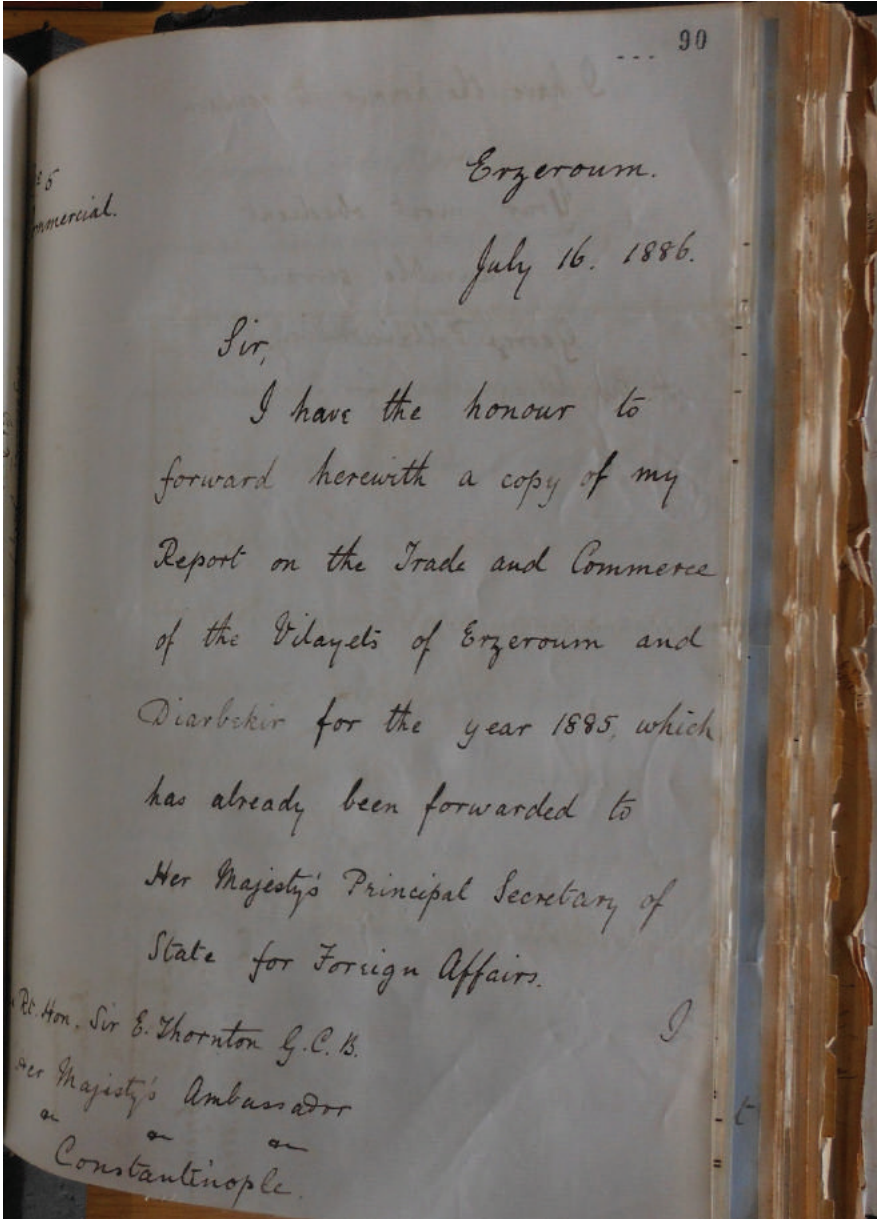 90
Erzeroum.
5
Commercial.
July 16. 1886.
Sir,
I have the honour to
forward herewith a copy of my
Report on the Trade and Commerce
of the Vilayets of Erzeroum and
Diarbekir for the year 1885, which
has already been forwarded to
Her Majesty's Principal Secretary of
State for Foreign Affairs.
I
Rt. Hon. Sir E. Thornton G.C.B.
Her Majesty's Ambassador
Constantinople.